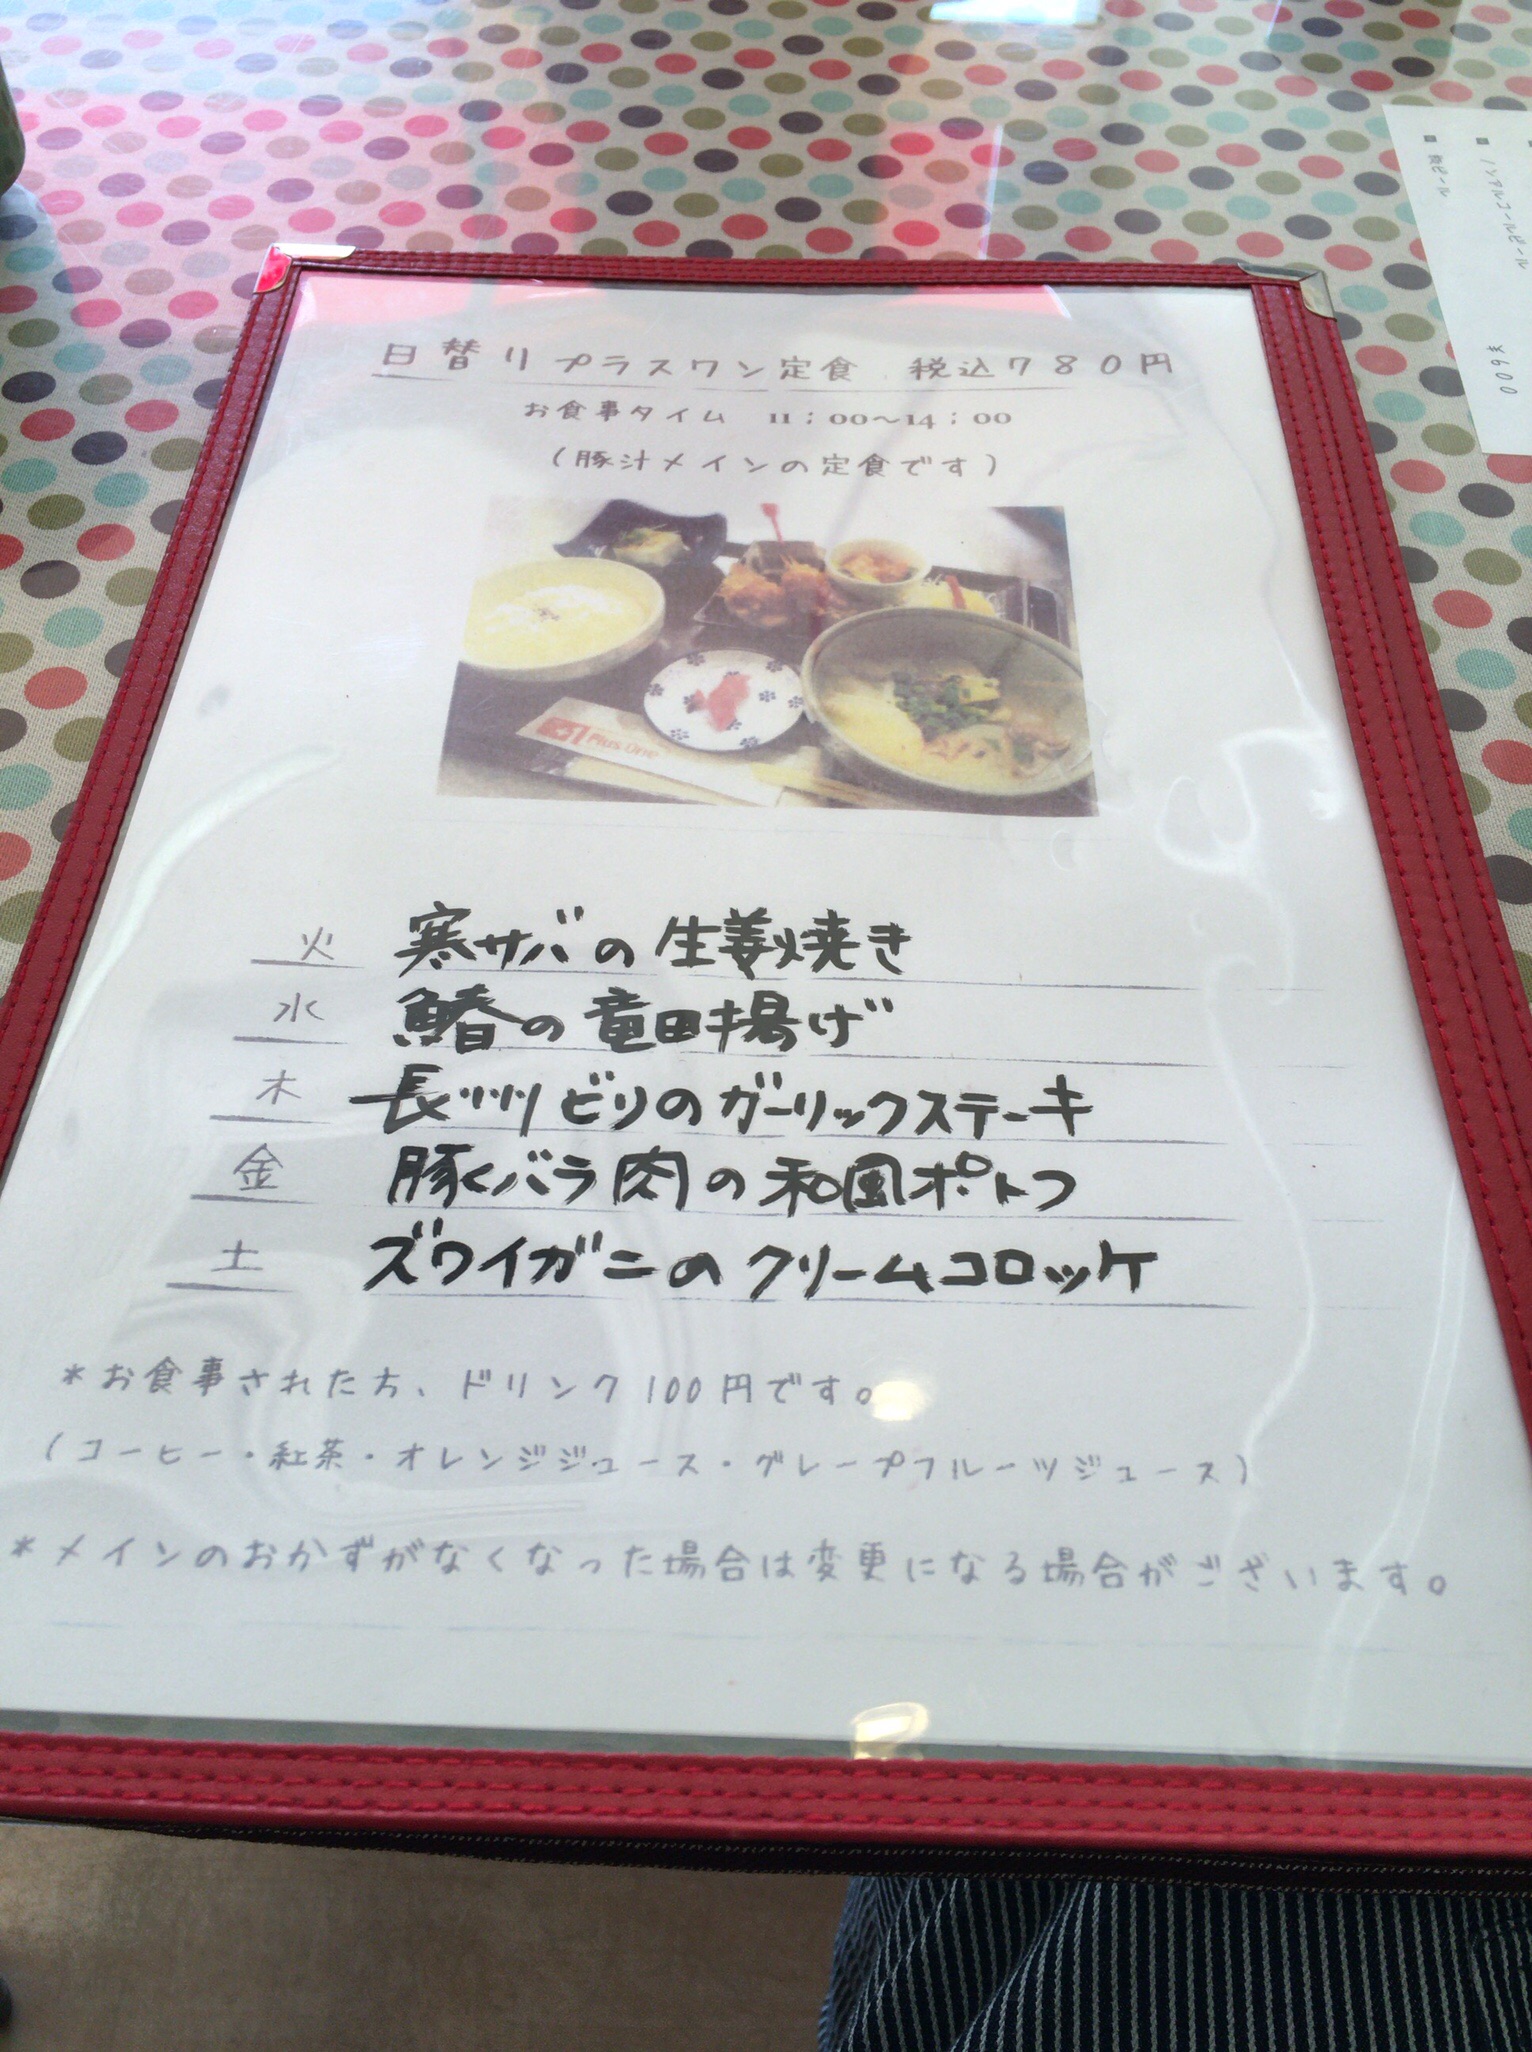 日替りプラスワン定食 税込780円
お食事タイム 11:00〜14:00
(豚汁メインの定食です)
Plus One
火 寒サバの生姜焼き
水 鰆の竜田揚げ
木 豚バラ肉の和風ポトフ
土 ズワイガニのクリームコロッケ
*お食事された方、ドリンク100円です。
(コーヒー・紅茶・オレンジジュース・グレープフルーツジュース)
*メインのおかずがなくなった場合は変更になる場合がございます。
ノンアルコールビール
¥600